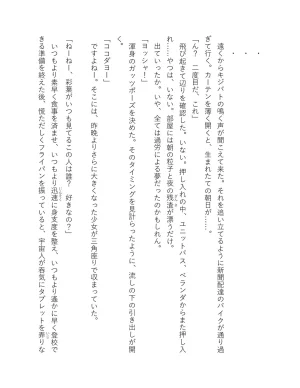 ・
・
・
遠くからキジバトの鳴く声が聞こえて来た。それを追い立てるように新聞配達のバイクが通り過
ぎて行く。カーテンを薄く開くと、生まれたての朝日が……。
「ん？　二度目だ、これ」
飛び起きて辺りを確認した。いない。押し入れの中、ユニットバス、ベランダからまた押し入
れ……やつは、いない。部屋には朝の粒子と夜の残渣が漂うだけ。
いない。いや、全ては過労による夢だったのかもしれん。
「ヨッシャ！」
渾身のガッツポーズを決めた。そのタイミングを見計らったように、流しの下の引き出しが開
く。
「ココダヨー」
ですよねー。そこには、昨晩よりさらに大きくなった少女が三角座りで収まっていた。
「ねーねー、彩葉がいつも見てるこの人は誰？　好きなの？」
いつもより素早く食事を済ませ、いつもより迅速に身支度を整え、いつもより遥かに早く登校で
きる準備を終えた後、慌ただしくフライパンを振っていると、宇宙人が呑気にタブレットを弄りな